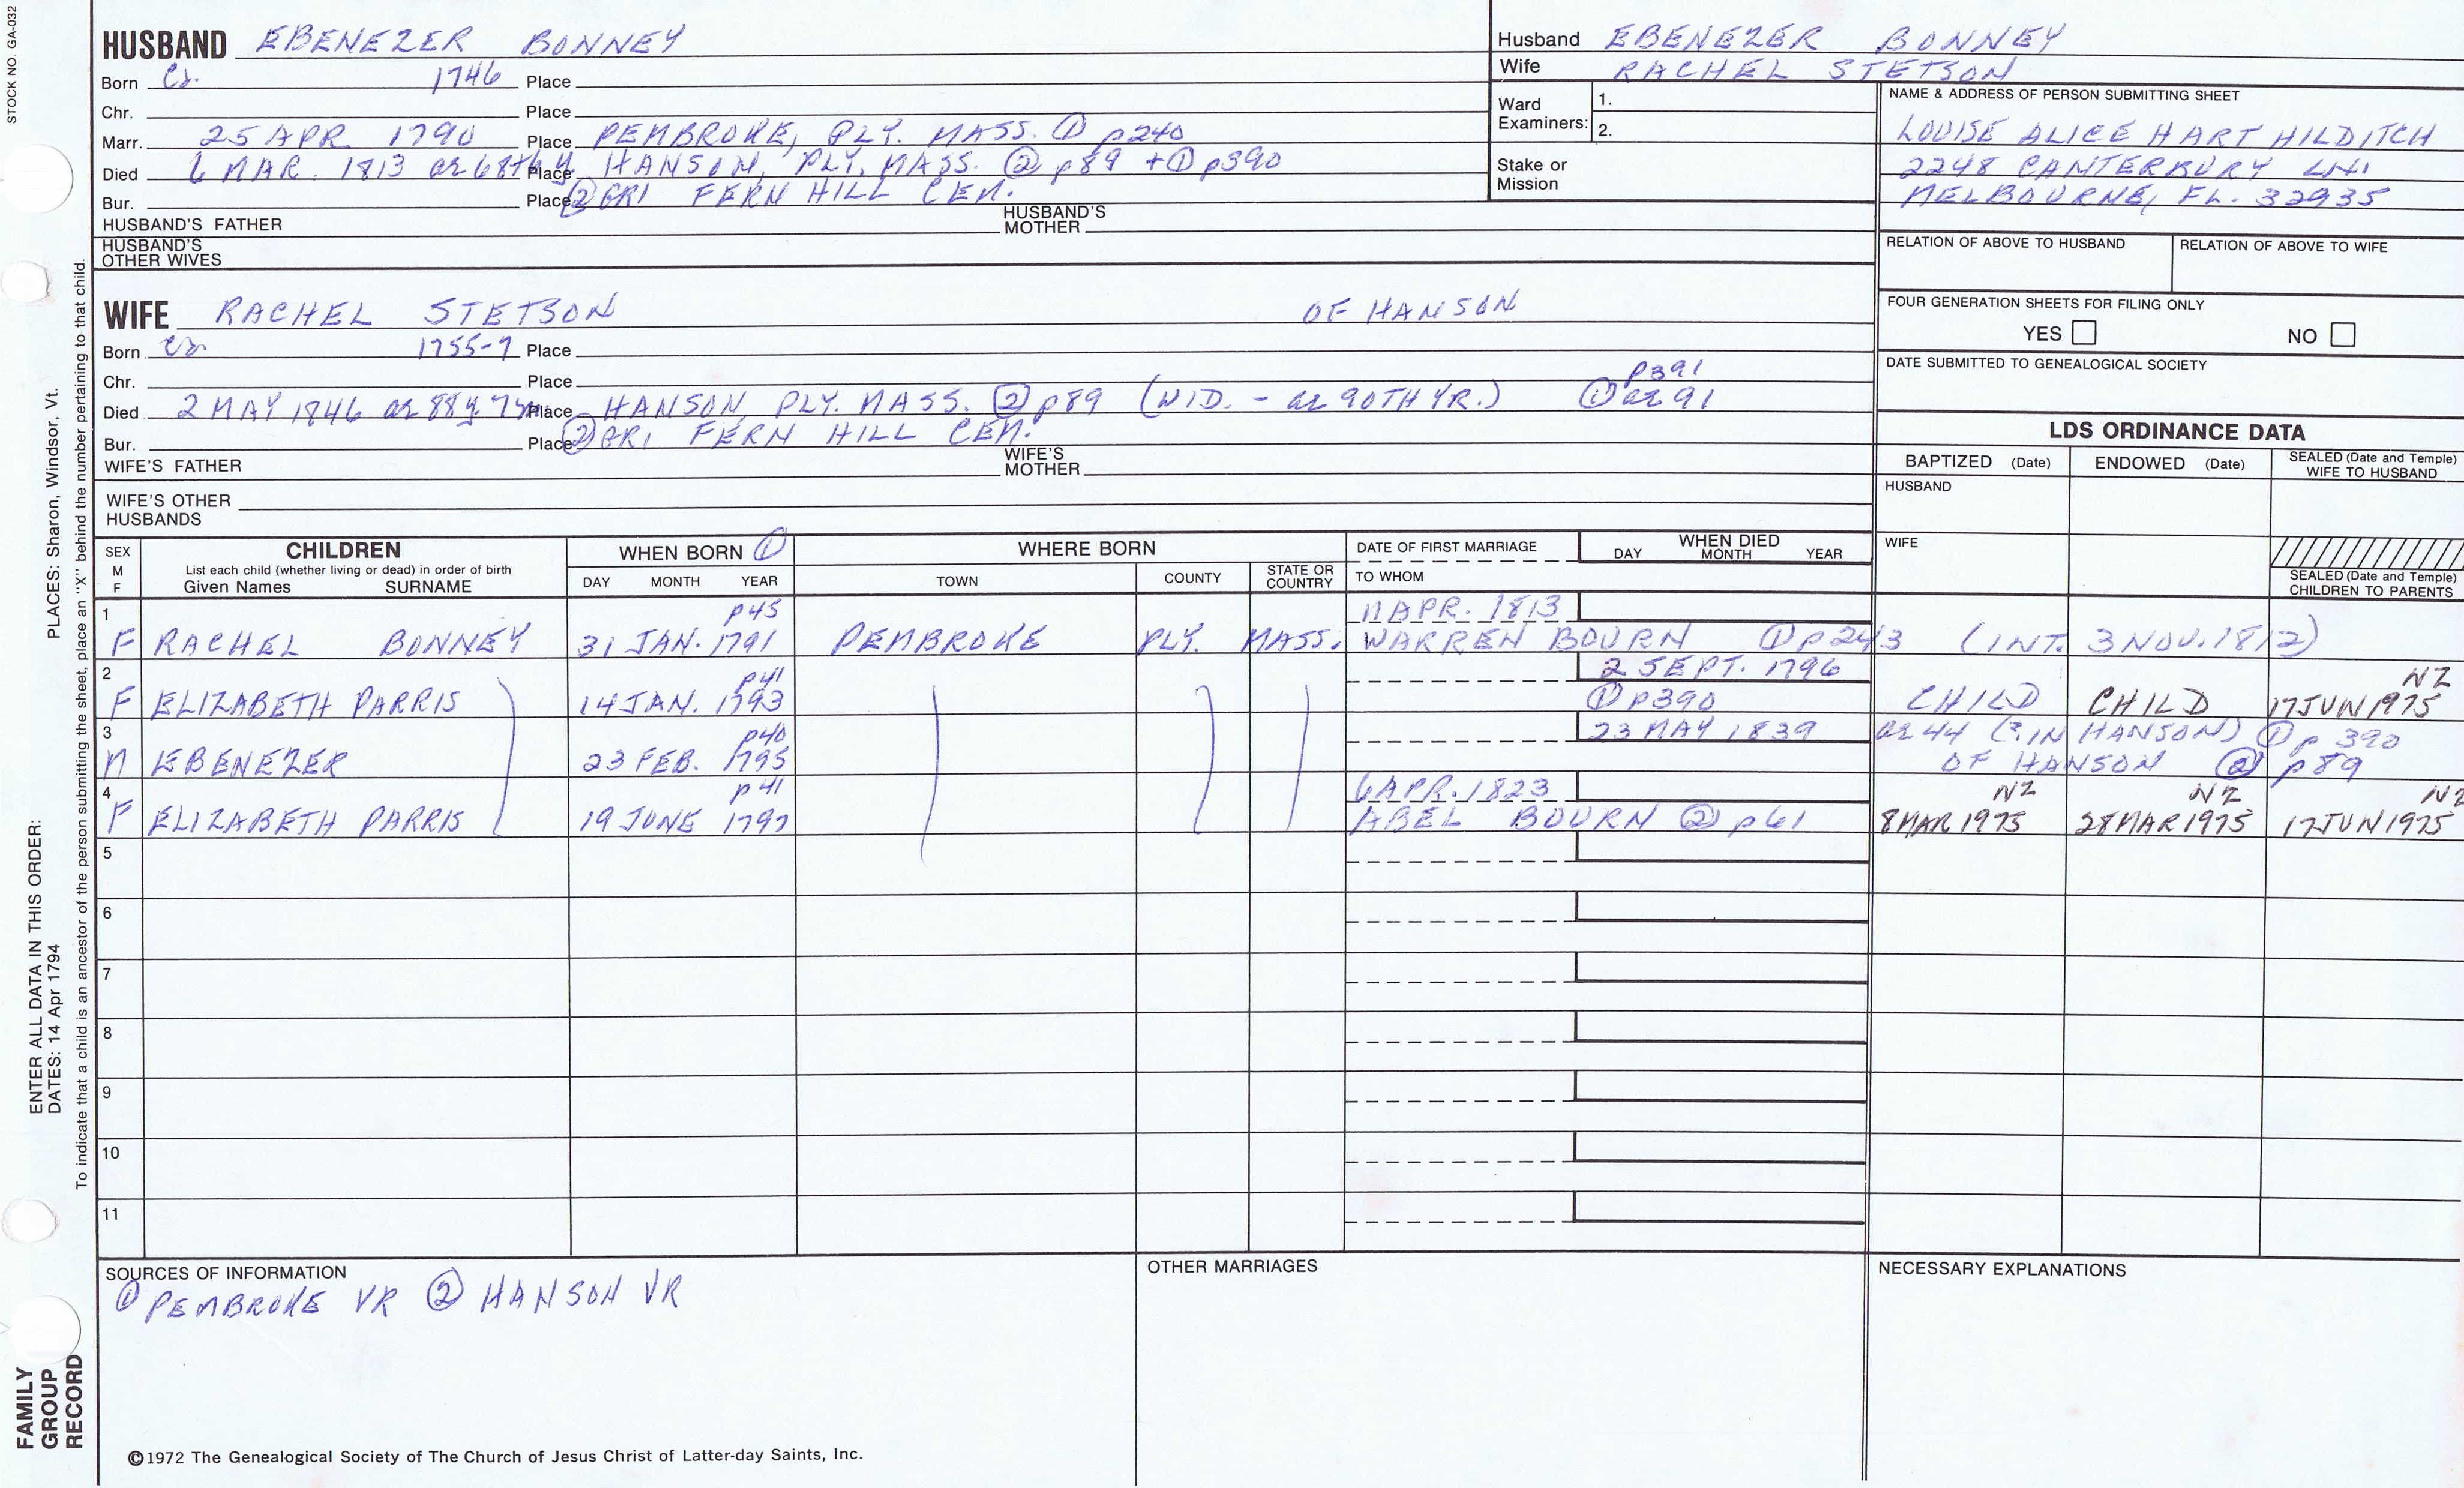 STOCK NO. GA-032
HUSBAND EBENEZER BONNEY
Born Ca. 1746 Place
Chr. Place
Marr. 25 APR 1790 Place PEMBROKE, PLY. MASS. ① p240
Died 6 MAR. 1813 ae 68th y Place HANSON, PLY. MASS. ② p89 + ① p390
Bur. Place ② GR1 FERN HILL CEM.
HUSBAND'S FATHER HUSBAND'S MOTHER
HUSBAND'S OTHER WIVES
Husband EBENEZER BONNEY
Wife RACHEL STETSON
Ward Examiners: 1.
2.
Stake or Mission
NAME & ADDRESS OF PERSON SUBMITTING SHEET
LOUISE ALICE HART HILDITCH
2248 CANTERBURY LN
MELBOURNE, FL. 32935
RELATION OF ABOVE TO HUSBAND RELATION OF ABOVE TO WIFE
FOUR GENERATION SHEETS FOR FILING ONLY
YES NO
DATE SUBMITTED TO GENEALOGICAL SOCIETY
WIFE RACHEL STETSON OF HANSON
Born Ca. 1755-7 Place
Chr. Place p391
Died 2 MAY 1846 ae 88y 7m Place HANSON, PLY. MASS. ② p89 (WID. - ae 90TH YR.) ① ae 91
Bur. Place ② GR1 FERN HILL CEM.
WIFE'S FATHER WIFE'S MOTHER
WIFE'S OTHER HUSBANDS
LDS ORDINANCE DATA
BAPTIZED (Date) ENDOWED (Date) SEALED (Date and Temple) WIFE TO HUSBAND
HUSBAND
WIFE
SEALED (Date and Temple) CHILDREN TO PARENTS
SEX M F CHILDREN List each child (whether living or dead) in order of birth Given Names SURNAME
WHEN BORN ① DAY MONTH YEAR
WHERE BORN TOWN COUNTY STATE OR COUNTRY
DATE OF FIRST MARRIAGE TO WHOM
WHEN DIED DAY MONTH YEAR
1 p45 11 APR. 1813
F RACHEL BONNEY 31 JAN. 1791 PEMBROKE PLY. MASS. WARREN BOURN ① p243 (INT. 3 NOV. 1812)
2 p41 2 SEPT. 1796 NZ
F ELIZABETH PARRIS 14 JAN. 1793 ① p390 CHILD CHILD 17 JUN 1975
3 p40 23 MAY 1839 ae 44 (?. IN HANSON) ① p 390
M EBENEZER 23 FEB. 1795 OF HANSON ② p89
4 p41 6 APR. 1823 NZ NZ NZ
F ELIZABETH PARRIS 19 JUNE 1797 ABEL BOURN ② p61 8 MAR 1975 28 MAR 1975 17 JUN 1975
5
6
7
8
9
10
11
SOURCES OF INFORMATION
① PEMBROKE VR ② HANSON VR
OTHER MARRIAGES
NECESSARY EXPLANATIONS
©1972 The Genealogical Society of The Church of Jesus Christ of Latter-day Saints, Inc.
ENTER ALL DATA IN THIS ORDER: PLACES: Sharon, Windsor, Vt.
DATES: 14 Apr 1794
To indicate that a child is an ancestor of the person submitting the sheet, place an "X" behind the number pertaining to that child.
FAMILY GROUP RECORD